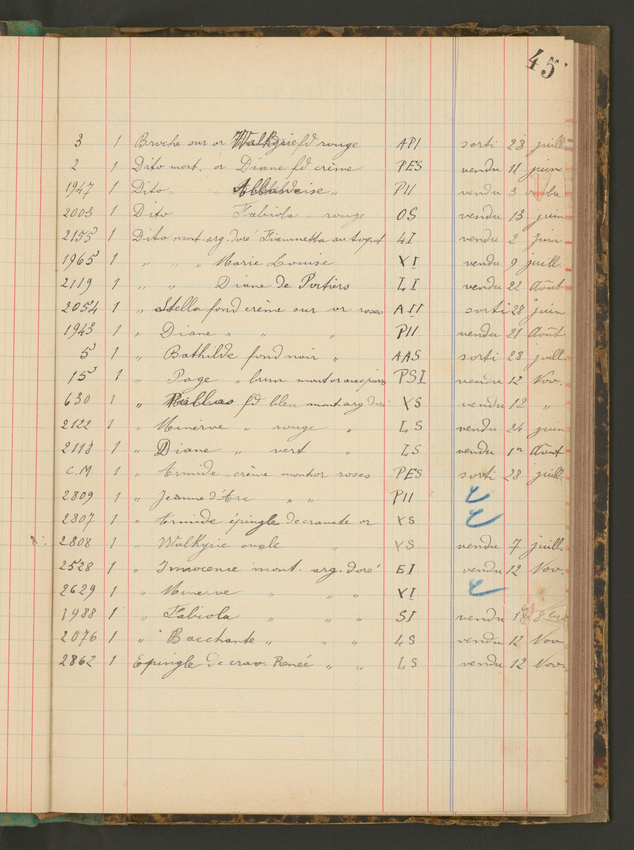 45
3 1 Broche sur or Walkyrie fd rouge API sorti 28 juill
2 1 Dito mont. or Diane fd crème PES vendu 11 juin
1947 1 Dito " " " PII vendu 3
2003 1 Dito Fabiola " rouge OS vendu 13 juin
2155 1 Dito mont arg. doré Fiammetta LI vendu 2 juin
1965 1 " " " Marie Louise YI vendu 9 juill.
2119 1 " " Diane de Poitiers LI vendu 22 Août
2054 1 " Stella fond crème sur or roses AII sorti 28 juin
1943 1 " Diane " " " PII vendu 21 Août
5 1 " Bathilde fond noir " AAS sorti 28 juill.
15 1 " Page " brun mont or avec PSI vendu 12 Nov.
630 1 " fd bleu mont arg doré YS vendu 12 "
2122 1 " Minerve " rouge " LS vendu 24 juin
2118 1 " Diane " vert " LS vendu 1er Août
C.M 1 " Armide crème mont or roses PES sorti 28 juill.
2809 1 " Jeanne d'Arc " " PII
2307 1 " Armide épingle de cravate or YS
2808 1 " Walkyrie ovale " YS vendu 7 juill.
2528 1 " Innocence mont. arg. doré EI vendu 12 Nov.
2629 1 " Minerve " " " YI
1988 1 " Fabiola " " " SI vendu
2076 1 " Bacchante " " " LS vendu 12 Nov
2862 1 Epingle de crav. Renée " " LS vendu 12 Nov.